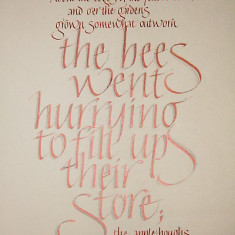 and over the gardens
grown somewhat outworn
the bees
went
hurrying
to fill up
their
store;
the apple-boughs